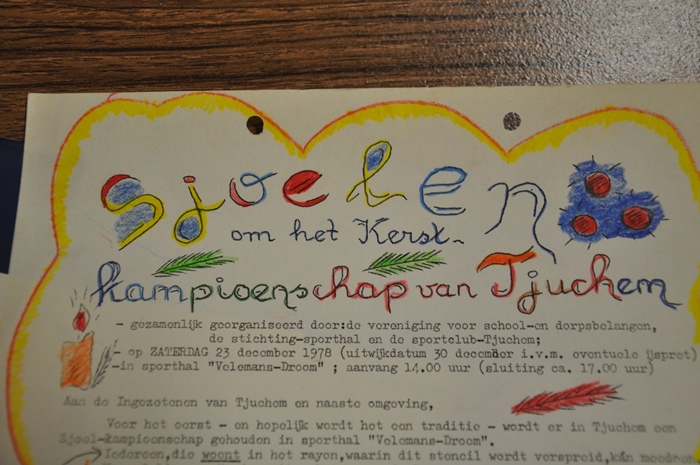 sjoelen
om het Kerst-
kampioenschap van Tjuchem
- gezamenlijk georganiseerd door:de vereniging voor school-en dorpsbelangen,
de stichting-sporthal en de sportclub-Tjuchem;
- op ZATERDAG 23 december 1978 (uitwijkdatum 30 december i.v.m. eventuele ijspret)
-in sporthal "Velemans-Droom" ; aanvang 14.00 uur (sluiting ca. 17.00 uur)
Aan de Ingezetenen van Tjuchem en naaste omgeving,
Voor het eerst - en hopelijk wordt het een traditie - wordt er in Tjuchem een
Sjoel-kampioenschap gehouden in sporthal "Velemans-Droom".
Iedereen,die woont in het rayon,waarin dit stencil wordt verspreid,kán meedoen